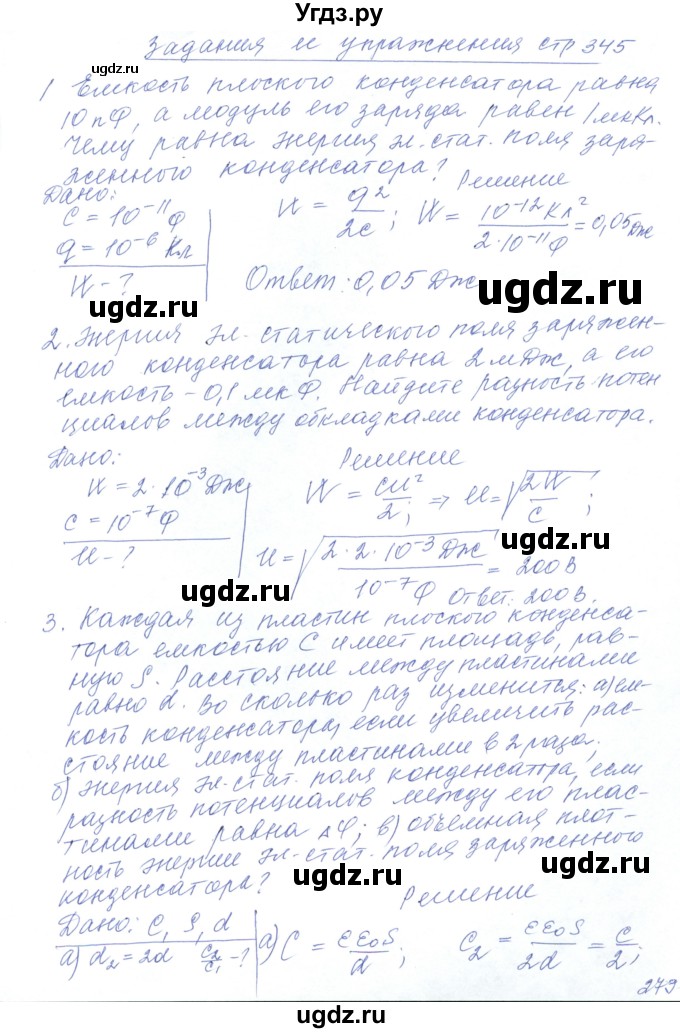 Угдз.ру
Задания и упражнения стр 345
1 Емкость плоского конденсатора равна
10 пФ, а модуль его заряда равен 1 мкКл.
Чему равна энергия эл. стат. поля заря-
женного конденсатора?
Дано: Решение
C = 10⁻¹¹ Ф
q = 10⁻⁶ Кл
W - ?
W = q²/2c; W = 10⁻¹² Кл²/2·10⁻¹¹Ф = 0,05 Дж
Ответ: 0,05 Дж
ugdz.ru
ugdz.ru
2. Энергия эл. статического поля заряжен-
ного конденсатора равна 2 мДж, а его
емкость - 0,1 мкФ. Найдите разность потен
циалов между обкладками конденсатора.
ugdz.ru
ugdz.ru
Дано: Решение
W = 2·10⁻³ Дж
C = 10⁻⁷ Ф
U - ?
W = CU²/2; ⇒ U = √2W/C;
U = √2·2·10⁻³ Дж/10⁻⁷ Ф = 200 В
Ответ: 200 В.
ugdz.ru
ugdz.ru
3. Каждая из пластин плоского конденса-
тора емкостью С имеет площадь, рав-
ную S. Расстояние между пластинами
равно d. Во сколько раз изменится: а) ем-
кость конденсатора, если увеличить рас-
стояние между пластинами в 2 раза;
б) энергия эл. стат. поля конденсатора, если
разность потенциалов между его плас-
тинами равна Δφ; в) объемная плот-
ность энергии эл.-стат. поля заряженного
конденсатора?
ugdz.ru
ugdz.ru
Решение
Дано: C, S, d
а) d₂ = 2d C₂/C₁ - ?
а) C = εε₀S/d; C₂ = εε₀S/2d = C/2;
ugdz.ru
ugdz.ru
279